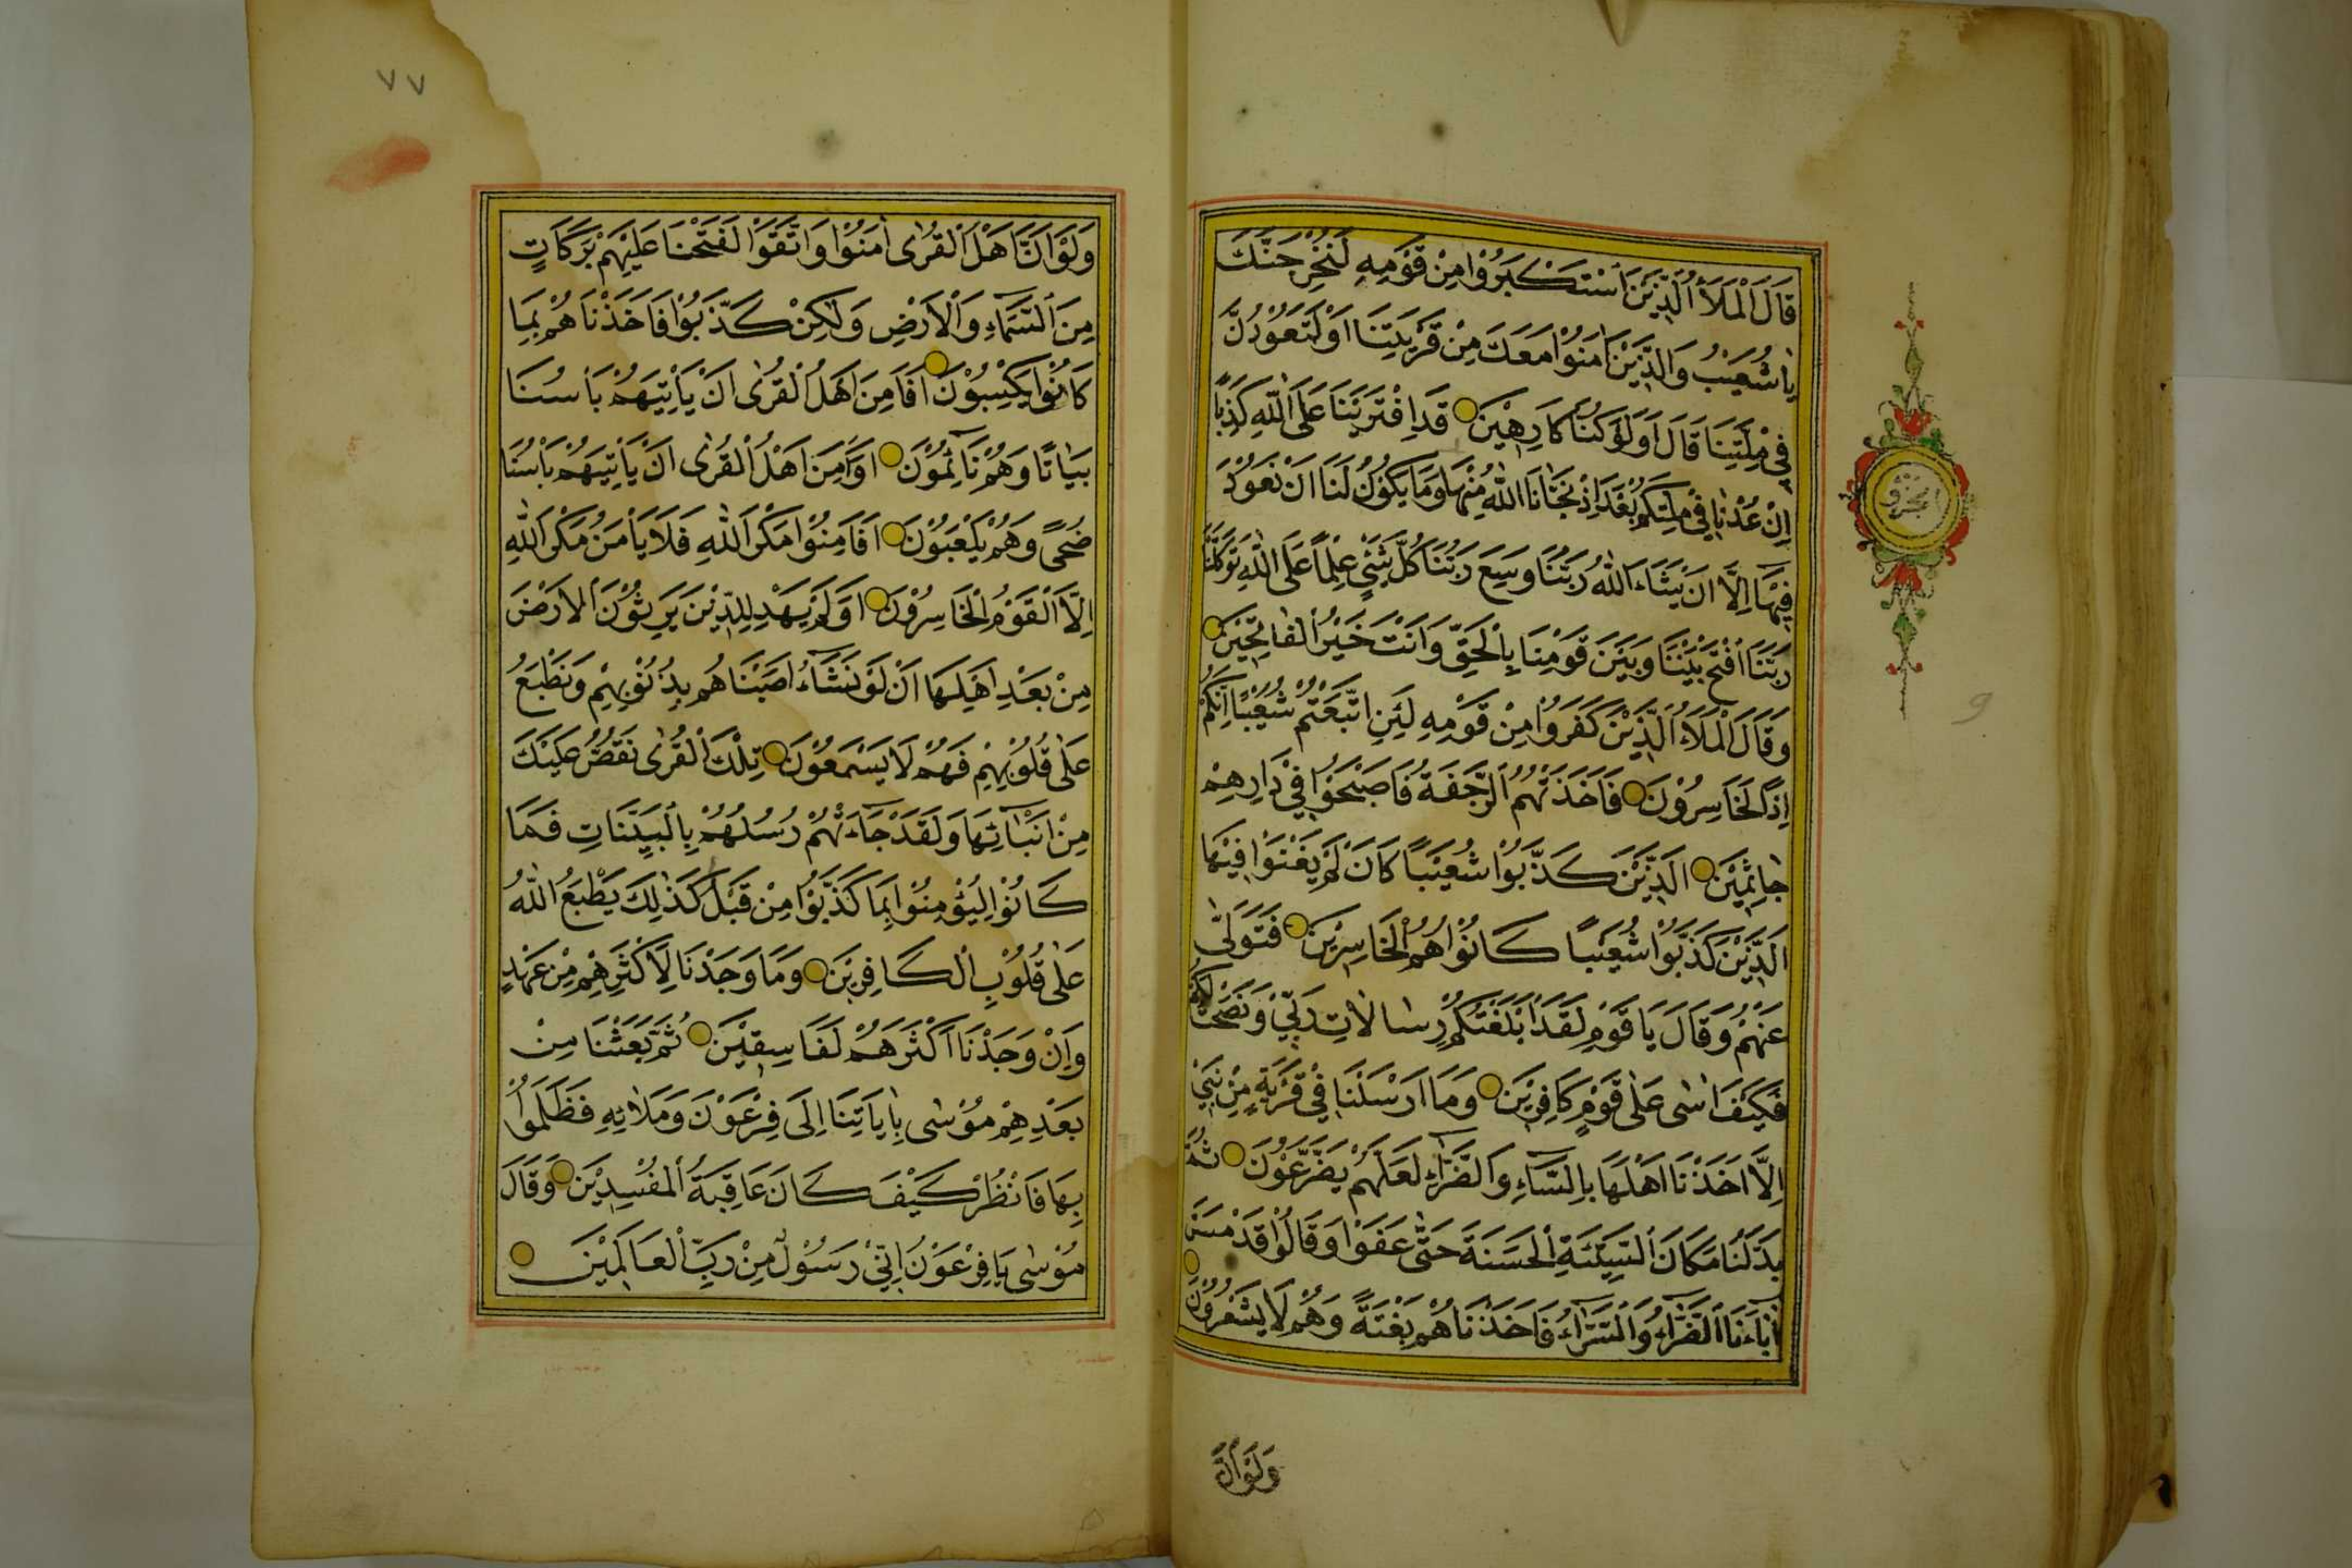 قَالَ الْمَلَأُ الَّذِينَ اسْتَكْبَرُوا مِنْ قَوْمِهِ لَنُخْرِجَنَّكَ
يَا شُعَيْبُ وَالَّذِينَ اٰمَنُوا مَعَكَ مِنْ قَرْيَتِنَا اَوْ لَتَعُودُنَّ
فِي مِلَّتِنَا قَالَ اَوَلَوْ كُنَّا كَارِهِينَ قَدِ افْتَرَيْنَا عَلَى اللّٰهِ كَذِبًا
اِنْ عُدْنَا فِي مِلَّتِكُمْ بَعْدَ اِذْ نَجّٰانَا اللّٰهُ مِنْهَا وَمَا يَكُونُ لَنَا اَنْ نَعُودَ
فِيهَا اِلَّا اَنْ يَشَاءَ اللّٰهُ رَبُّنَا وَسِعَ رَبُّنَا كُلَّ شَيْءٍ عِلْمًا عَلَى اللّٰهِ تَوَكَّلْنَا
رَبَّنَا افْتَحْ بَيْنَنَا وَبَيْنَ قَوْمِنَا بِالْحَقِّ وَاَنْتَ خَيْرُ الْفَاتِحِينَ
وَقَالَ الْمَلَاُ الَّذِينَ كَفَرُوا مِنْ قَوْمِهِ لَئِنِ اتَّبَعْتُمْ شُعَيْبًا اِنَّكُمْ
اِذًا لَخَاسِرُونَ فَاَخَذَتْهُمُ الرَّجْفَةُ فَاَصْبَحُوا فِي دَارِهِمْ
جَاثِمِينَ اَلَّذِينَ كَذَّبُوا شُعَيْبًا كَاَنْ لَمْ يَغْنَوْا فِيهَا
اَلَّذِينَ كَذَّبُوا شُعَيْبًا كَانُوا هُمُ الْخَاسِرِينَ فَتَوَلّٰى
عَنْهُمْ وَقَالَ يَا قَوْمِ لَقَدْ اَبْلَغْتُكُمْ رِسَالَاتِ رَبِّي وَنَصَحْتُ لَكُمْ
فَكَيْفَ اٰسٰى عَلٰى قَوْمٍ كَافِرِينَ وَمَا اَرْسَلْنَا فِي قَرْيَةٍ مِنْ نَبِيٍّ
اِلَّا اَخَذْنَا اَهْلَهَا بِالْبَاْسَاءِ وَالضَّرَّاءِ لَعَلَّهُمْ يَضَّرَّعُونَ ثُمَّ
بَدَّلْنَا مَكَانَ السَّيِّئَةِ الْحَسَنَةَ حَتّٰى عَفَوْا وَقَالُوا قَدْ مَسَّ
اٰبَاءَنَا الضَّرَّاءُ وَالسَّرَّاءُ فَاَخَذْنَاهُمْ بَغْتَةً وَهُمْ لَا يَشْعُرُونَ
وَلَوْ اَنَّ
الجزو
٩
٧٧
وَلَوْ اَنَّ اَهْلَ الْقُرٰى اٰمَنُوا وَاتَّقَوْا لَفَتَحْنَا عَلَيْهِمْ بَرَكَاتٍ
مِنَ السَّمَاءِ وَالْاَرْضِ وَلٰكِنْ كَذَّبُوا فَاَخَذْنَاهُمْ بِمَا
كَانُوا يَكْسِبُونَ اَفَاَمِنَ اَهْلُ الْقُرٰى اَنْ يَاْتِيَهُمْ بَاْسُنَا
بَيَاتًا وَهُمْ نَائِمُونَ اَوَاَمِنَ اَهْلُ الْقُرٰى اَنْ يَاْتِيَهُمْ بَاْسُنَا
ضُحًى وَهُمْ يَلْعَبُونَ اَفَاَمِنُوا مَكْرَ اللّٰهِ فَلَا يَاْمَنُ مَكْرَ اللّٰهِ
اِلَّا الْقَوْمُ الْخَاسِرُونَ اَوَلَمْ يَهْدِ لِلَّذِينَ يَرِثُونَ الْاَرْضَ
مِنْ بَعْدِ اَهْلِهَا اَنْ لَوْ نَشَاءُ اَصَبْنَاهُمْ بِذُنُوبِهِمْ وَنَطْبَعُ
عَلٰى قُلُوبِهِمْ فَهُمْ لَا يَسْمَعُونَ تِلْكَ الْقُرٰى نَقُصُّ عَلَيْكَ
مِنْ اَنْبَائِهَا وَلَقَدْ جَاءَتْهُمْ رُسُلُهُمْ بِالْبَيِّنَاتِ فَمَا
كَانُوا لِيُؤْمِنُوا بِمَا كَذَّبُوا مِنْ قَبْلُ كَذٰلِكَ يَطْبَعُ اللّٰهُ
عَلٰى قُلُوبِ الْكَافِرِينَ وَمَا وَجَدْنَا لِاَكْثَرِهِمْ مِنْ عَهْدٍ
وَاِنْ وَجَدْنَا اَكْثَرَهُمْ لَفَاسِقِينَ ثُمَّ بَعَثْنَا مِنْ
بَعْدِهِمْ مُوسٰى بِاٰيَاتِنَا اِلٰى فِرْعَوْنَ وَمَلَائِهِ فَظَلَمُوا
بِهَا فَانْظُرْ كَيْفَ كَانَ عَاقِبَةُ الْمُفْسِدِينَ وَقَالَ
مُوسٰى يَا فِرْعَوْنُ اِنِّي رَسُولٌ مِنْ رَبِّ الْعَالَمِينَ